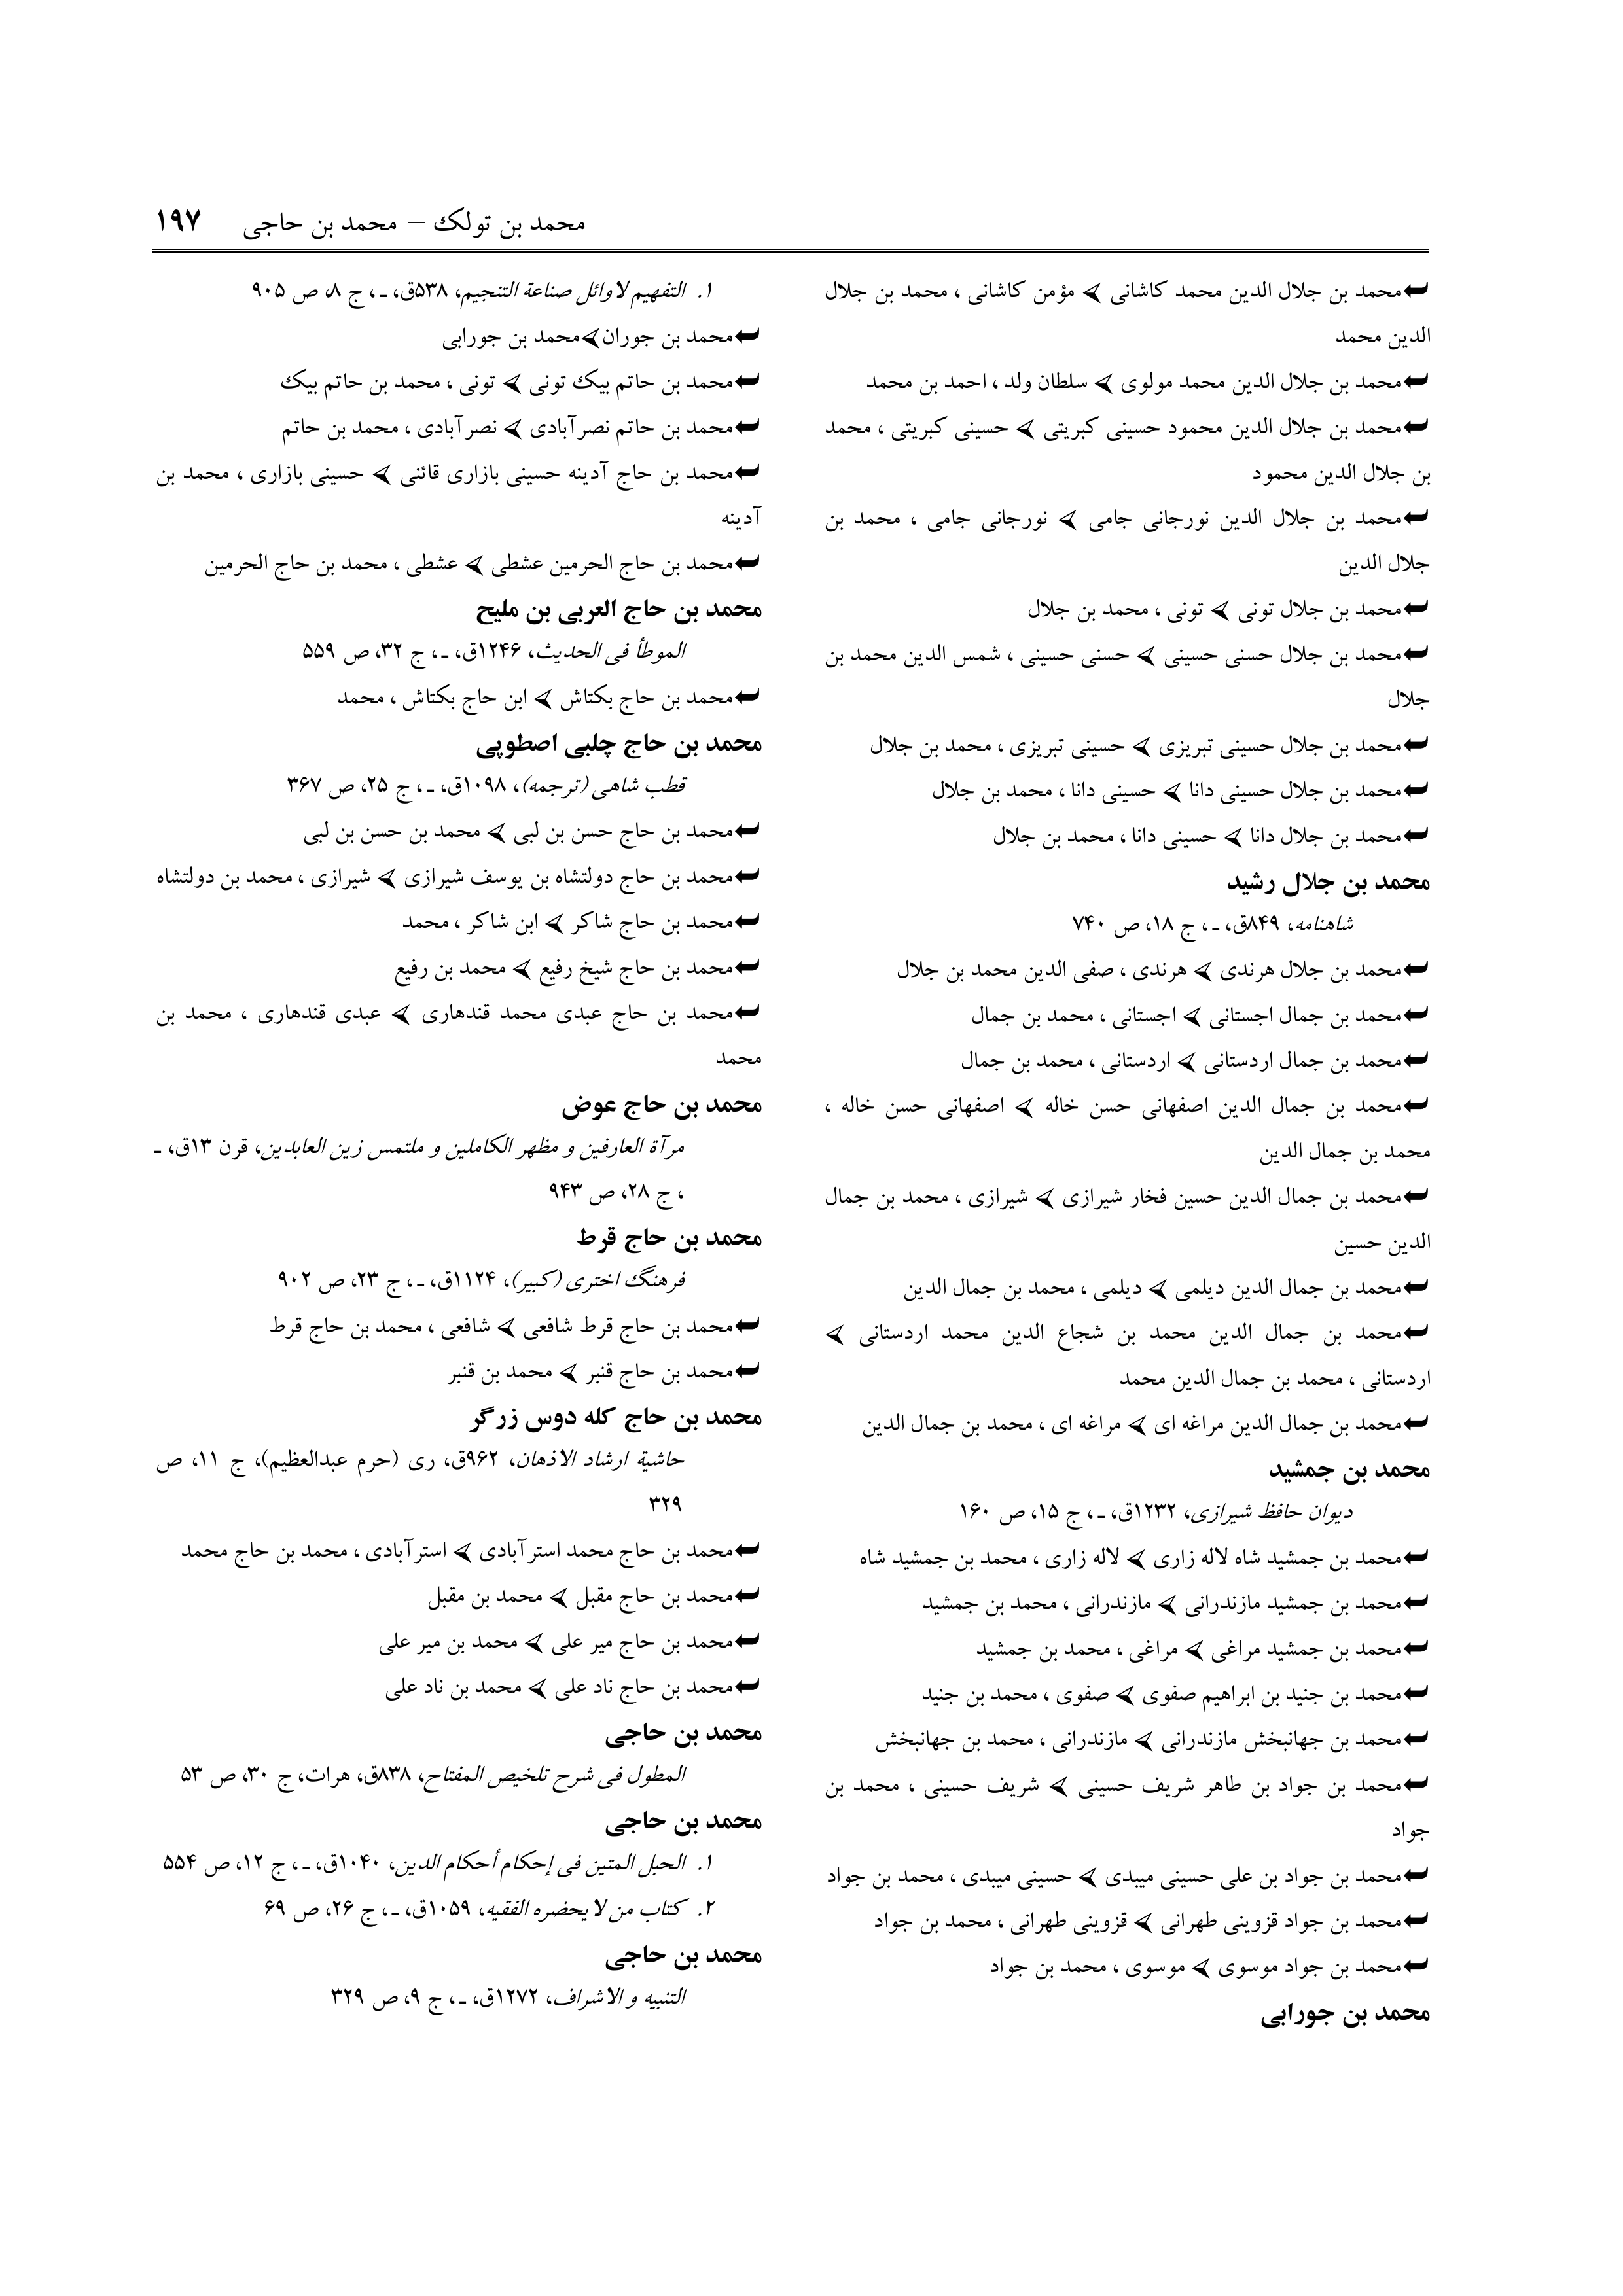 محمد بن تولک – محمد بن حاجی ۱۹۷
محمد بن جلال الدین محمد کاشانی ➢ مؤمن کاشانی ، محمد بن جلال
الدین محمد
محمد بن جلال الدین محمد مولوی ➢ سلطان ولد ، احمد بن محمد
محمد بن جلال الدین محمود حسینی کبریتی ➢ حسینی کبریتی ، محمد
بن جلال الدین محمود
محمد بن جلال الدین نورجانی جامی ➢ نورجانی جامی ، محمد بن
جلال الدین
محمد بن جلال تونی ➢ تونی ، محمد بن جلال
محمد بن جلال حسنی حسینی ➢ حسنی حسینی ، شمس الدین محمد بن
جلال
محمد بن جلال حسینی تبریزی ➢ حسینی تبریزی ، محمد بن جلال
محمد بن جلال حسینی دانا ➢ حسینی دانا ، محمد بن جلال
محمد بن جلال دانا ➢ حسینی دانا ، محمد بن جلال
محمد بن جلال رشید
شاهنامه، ۸۴۹ق، ـ ، ج ۱۸، ص ۷۴۰
محمد بن جلال هرندی ➢ هرندی ، صفی الدین محمد بن جلال
محمد بن جمال اجستانی ➢ اجستانی ، محمد بن جمال
محمد بن جمال اردستانی ➢ اردستانی ، محمد بن جمال
محمد بن جمال الدین اصفهانی حسن خاله ➢ اصفهانی حسن خاله ،
محمد بن جمال الدین
محمد بن جمال الدین حسین فخار شیرازی ➢ شیرازی ، محمد بن جمال
الدین حسین
محمد بن جمال الدین دیلمی ➢ دیلمی ، محمد بن جمال الدین
محمد بن جمال الدین محمد بن شجاع الدین محمد اردستانی ➢
اردستانی ، محمد بن جمال الدین محمد
محمد بن جمال الدین مراغه ای ➢ مراغه ای ، محمد بن جمال الدین
محمد بن جمشید
دیوان حافظ شیرازی، ۱۲۳۲ق، ـ ، ج ۱۵، ص ۱۶۰
محمد بن جمشید شاه لاله زاری ➢ لاله زاری ، محمد بن جمشید شاه
محمد بن جمشید مازندرانی ➢ مازندرانی ، محمد بن جمشید
محمد بن جمشید مراغی ➢ مراغی ، محمد بن جمشید
محمد بن جنید بن ابراهیم صفوی ➢ صفوی ، محمد بن جنید
محمد بن جهانبخش مازندرانی ➢ مازندرانی ، محمد بن جهانبخش
محمد بن جواد بن طاهر شریف حسینی ➢ شریف حسینی ، محمد بن
جواد
محمد بن جواد بن علی حسینی میبدی ➢ حسینی میبدی ، محمد بن جواد
محمد بن جواد قزوینی طهرانی ➢ قزوینی طهرانی ، محمد بن جواد
محمد بن جواد موسوی ➢ موسوی ، محمد بن جواد
محمد بن جورابی
۱. التفهیم لاوائل صناعة التنجیم، ۵۳۸ق، ـ ، ج ۸، ص ۹۰۵
محمد بن جوران➢محمد بن جورابی
محمد بن حاتم بیک تونی ➢ تونی ، محمد بن حاتم بیک
محمد بن حاتم نصرآبادی ➢ نصرآبادی ، محمد بن حاتم
محمد بن حاج آدینه حسینی بازاری قائنی ➢ حسینی بازاری ، محمد بن
آدینه
محمد بن حاج الحرمین عشطی ➢ عشطی ، محمد بن حاج الحرمین
محمد بن حاج العربی بن ملیح
الموطأ فی الحدیث، ۱۲۴۶ق، ـ ، ج ۳۲، ص ۵۵۹
محمد بن حاج بکتاش ➢ ابن حاج بکتاش ، محمد
محمد بن حاج چلبی اصطوپی
قطب شاهی (ترجمه)، ۱۰۹۸ق، ـ ، ج ۲۵، ص ۳۶۷
محمد بن حاج حسن بن لبی ➢ محمد بن حسن بن لبی
محمد بن حاج دولتشاه بن یوسف شیرازی ➢ شیرازی ، محمد بن دولتشاه
محمد بن حاج شاکر ➢ ابن شاکر ، محمد
محمد بن حاج شیخ رفیع ➢ محمد بن رفیع
محمد بن حاج عبدی محمد قندهاری ➢ عبدی قندهاری ، محمد بن
محمد
محمد بن حاج عوض
مرآة العارفین و مظهر الکاملین و ملتمس زین العابدین، قرن ۱۳ق، ـ
، ج ۲۸، ص ۹۴۳
محمد بن حاج قرط
فرهنگ اختری (کبیر)، ۱۱۲۴ق، ـ ، ج ۲۳، ص ۹۰۲
محمد بن حاج قرط شافعی ➢ شافعی ، محمد بن حاج قرط
محمد بن حاج قنبر ➢ محمد بن قنبر
محمد بن حاج کله دوس زرگر
حاشیة ارشاد الاذهان، ۹۶۲ق، ری (حرم عبدالعظیم)، ج ۱۱، ص
۳۲۹
محمد بن حاج محمد استرآبادی ➢ استرآبادی ، محمد بن حاج محمد
محمد بن حاج مقبل ➢ محمد بن مقبل
محمد بن حاج میر علی ➢ محمد بن میر علی
محمد بن حاج ناد علی ➢ محمد بن ناد علی
محمد بن حاجی
المطول فی شرح تلخیص المفتاح، ۸۳۸ق، هرات، ج ۳۰، ص ۵۳
محمد بن حاجی
۱. الحبل المتین فی إحکام أحکام الدین، ۱۰۴۰ق، ـ ، ج ۱۲، ص ۵۵۴
۲. کتاب من لا یحضره الفقیه، ۱۰۵۹ق، ـ ، ج ۲۶، ص ۶۹
محمد بن حاجی
التنبیه و الاشراف، ۱۲۷۲ق، ـ ، ج ۹، ص ۳۲۹